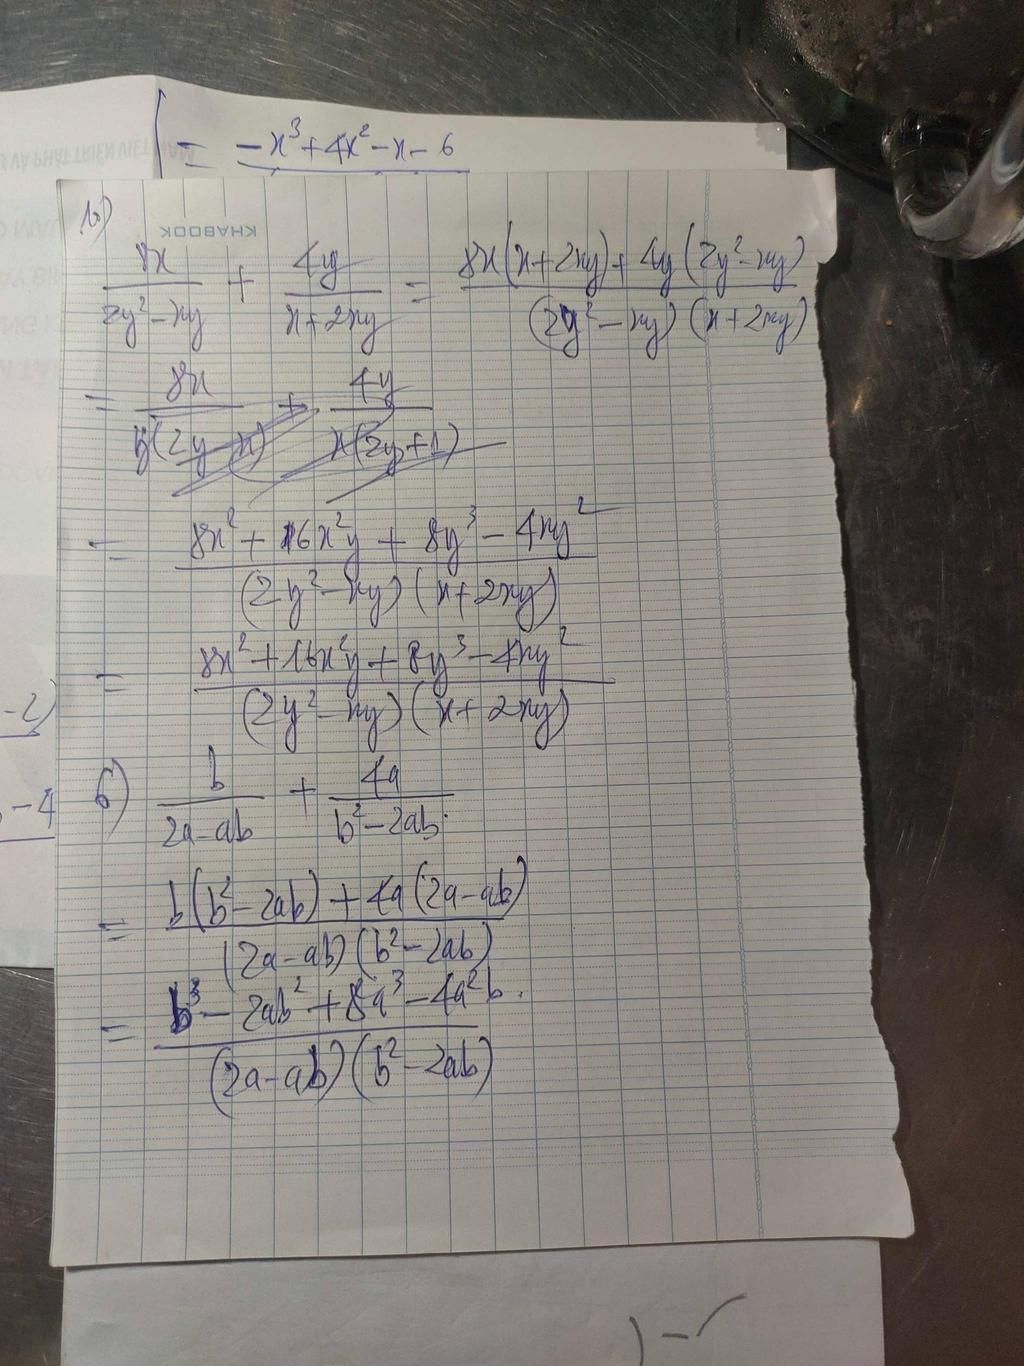 = -x³+4x²-x-6
KHABOOK
b)
8x/(2y²-xy) + 4y/(x+2xy) = (8x(x+2xy)+4y(2y²-xy))/((2y²-xy)(x+2xy))
= 8x/(y(2y-x)) + 4y/(x(2y+1))
= (8x²+16x²y+8y³-4xy²)/((2y²-xy)(x+2xy))
= (8x²+16x²y+8y³-4xy²)/((2y²-xy)(x+2xy))
-2)
-4
6) b/(2a-ab) + 4a/(b²-2ab)
= (b(b²-2ab)+4a(2a-ab))/((2a-ab)(b²-2ab))
= (b³-2ab²+8a³-4a²b)/((2a-ab)(b²-2ab))